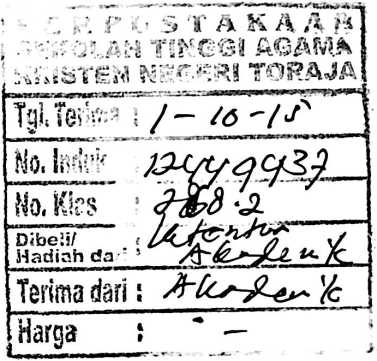 PERPUSTAKAAN
SEKOLAH TINGGI AGAMA
KRISTEN NEGERI TORAJA
Tgl. Terima : 1-10-15
No. Induk
No. Klas : 268.2
Dibeli/
Hadiah dari : Akademik
Terima dari : Akademik
Harga : -